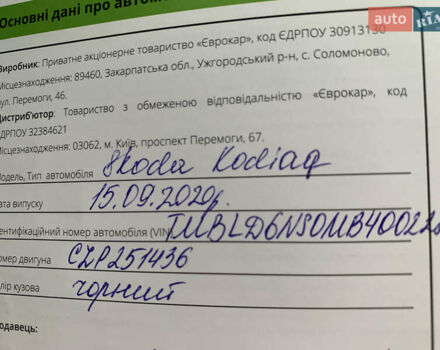 Основні дані про автомо
auto RIA
Виробник: Приватне акціонерне товариство «Єврокар», код ЄДРПОУ 30913130
Місцезнаходження: 89460, Закарпатська обл., Ужгородський р-н, с. Соломоново,
вул. Перемоги, 46.
Дистриб'ютор: Товариство з обмеженою відповідальністю «Єврокар», код
ЄДРПОУ 32384621
Місцезнаходження: 03062, м. Київ, проспект Перемоги, 67.
Модель, Тип автомобіля Skoda Kodiaq
ата випуску 15.09.2020р.
ентифікаційний номер автомобіля (VIN) TMBLD6NS0MB40022
омер двигуна CZP251436
лір кузова чорний
одавець: